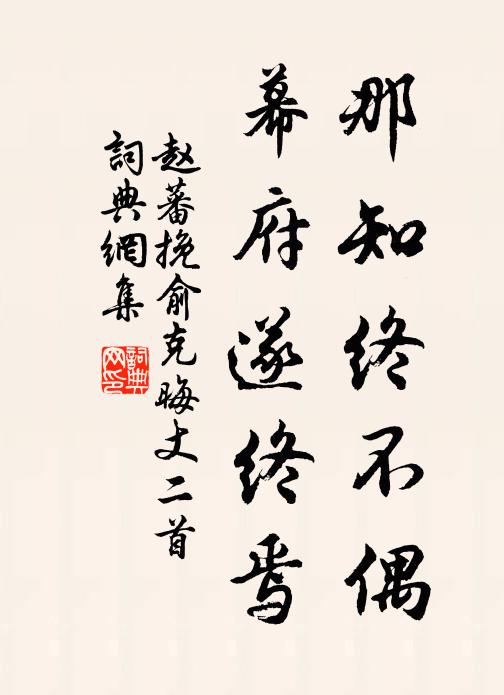 那知终不偶
幕府遂终焉
赵蕃挽俞克晦丈二首
詞典網集
詞典网印